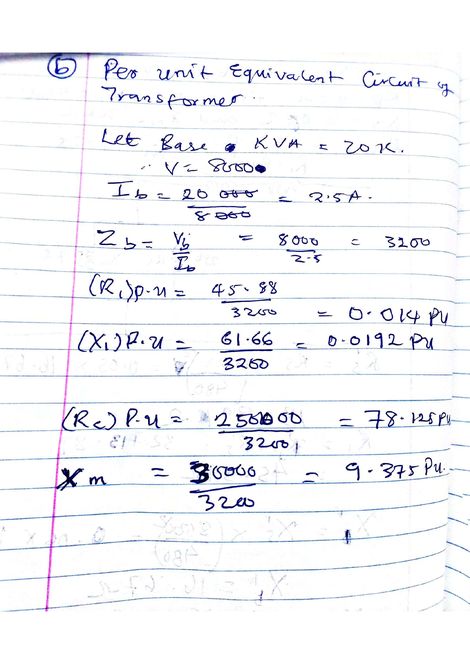 (b) Per unit Equivalent Circuit of
Transformer.
Let Base KVA = 20K.
∴ V = 8000
I b = 20 000 / 8 000 = 2.5A.
Z b = Vb / Ib = 8000 / 2.5 = 3200
(R1) p.u = 45.88 / 3200 = 0.014 PU
(X1) P.u = 61.66 / 3200 = 0.0192 PU
(Rc) P.u = 250000 / 3200 = 78.125 PU
Xm = 30000 / 3200 = 9.375 PU.